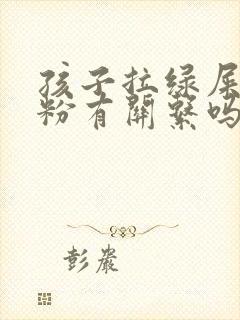 孩子拉绿屎
粉有關繫吗
彭巖